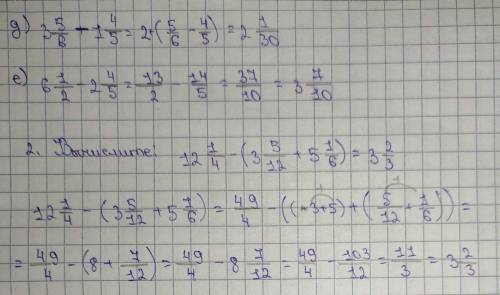 д) 3 5/6 - 1 4/5 = 2 + (5/6 - 4/5) = 2 1/30
е) 6 1/2 - 2 4/5 = 13/2 - 14/5 = 37/10 = 3 7/10
2. Вычислите: 12 1/4 - (3 5/12 + 5 1/6) = 3 2/3
12 1/4 - (3 5/12 + 5 1/6) = 49/4 - ((3+5) + (5/12 + 1/6)) =
= 49/4 - (8 + 7/12) = 49/4 - 8 7/12 = 49/4 - 103/12 = 11/3 = 3 2/3